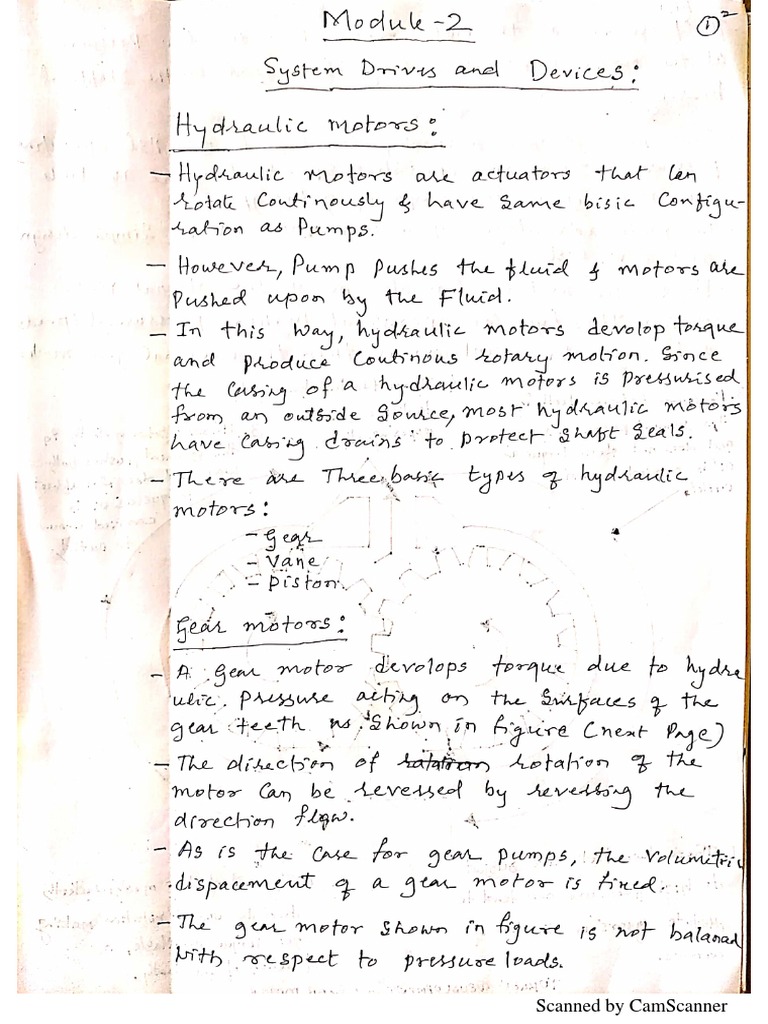 Module-2
① 2
System Drives and Devices:
Hydraulic motors:
- Hydraulic motors are actuators that Can
rotate Continously & have same bisic Configu-
ration as Pumps.
- However, Pump pushes the fluid & motors are
pushed upon by the Fluid.
- In this way, hydraulic motors devolop torque
and produce Continous rotary motion. Since
the Casing of a hydraulic motors is pressurised
from an outside source, most hydraulic motors
have Casing drains to protect shaft seals.
- There are Three basic types of hydraulic
motors:
- Gear
- Vane
- piston
Gear motors:
- A Gear motor devolops torque due to hydra
ulic pressure acting on the surfaces of the
gear teeth as shown in figure (next page)
- The direction of rotation of the
motor Can be revessed by revessing the
direction flow.
- As is the Case for gear pumps, the Volumetric
dispacement of a gear motor is fixed.
- The gear motor shown in figure is not balanad
With respect to pressure loads.
Scanned by CamScanner